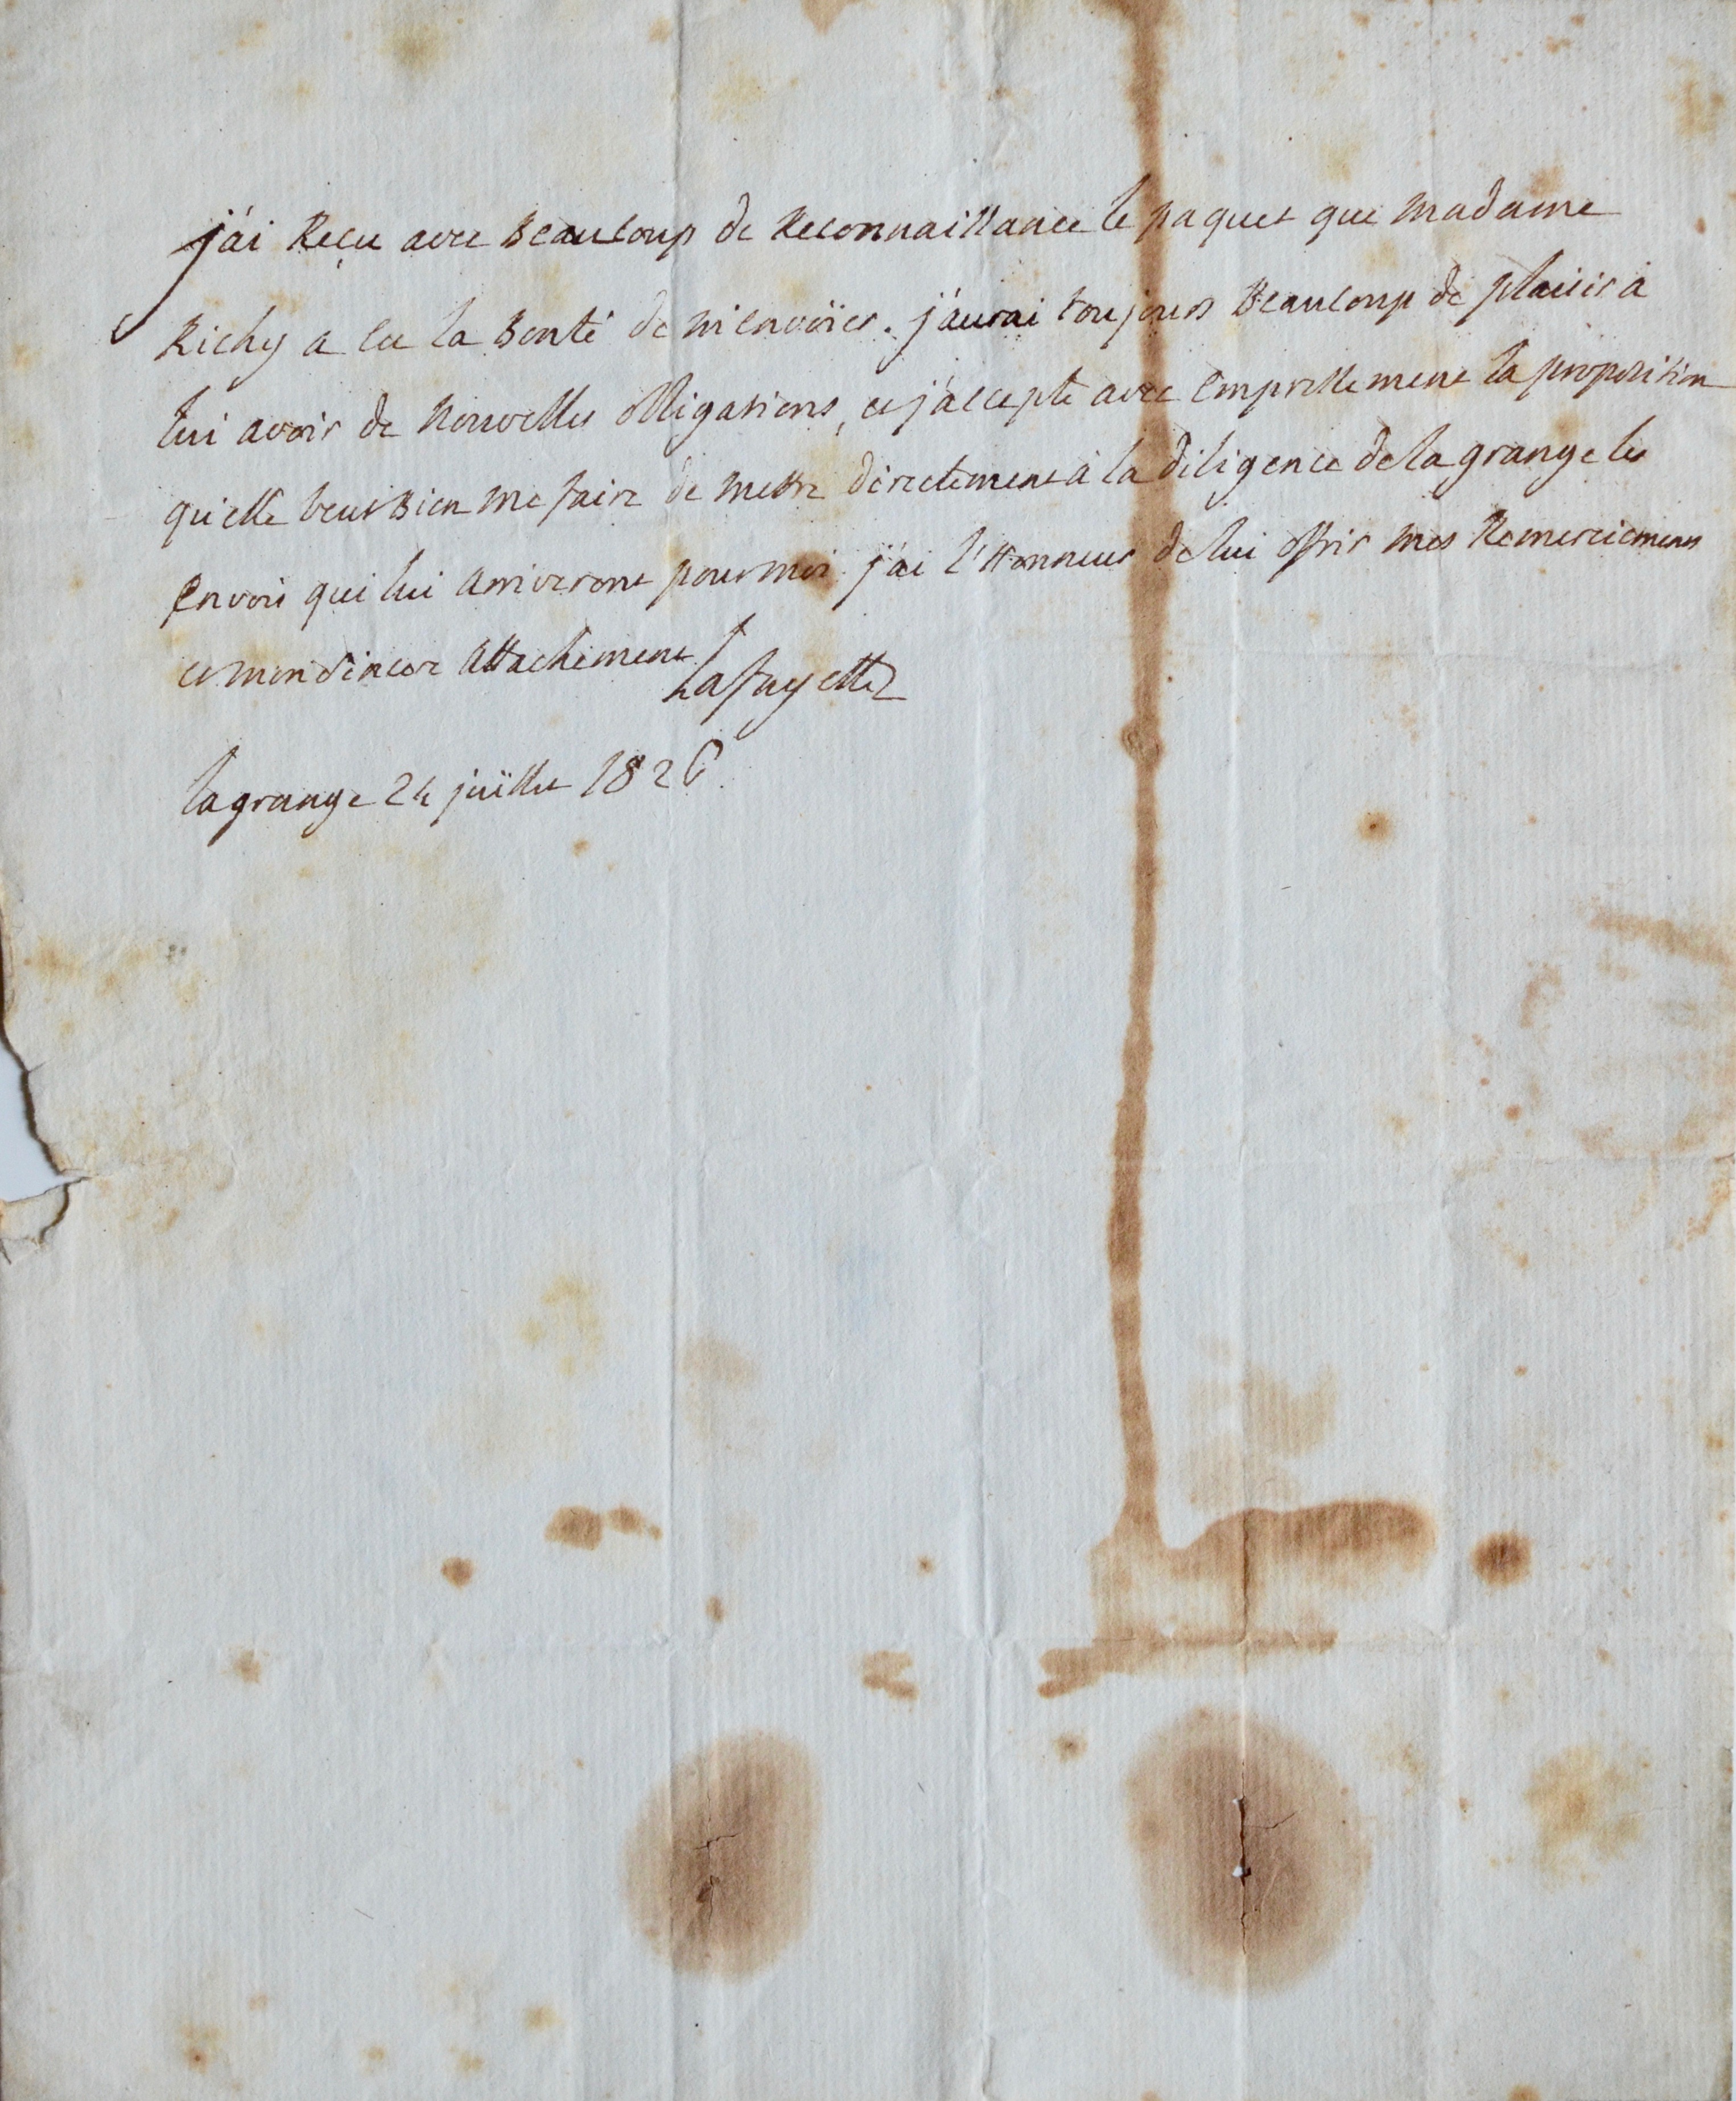 j'ai Reçu avec Beaucoup de Reconnaissance le paquet que Madame
Richy a eu la Bonté de m'envoïer. j'aurai toujours Beaucoup de plaisir à
lui avoir de Nouvelles obligations, et j'accepte avec empressement la proposition
qu'elle veut Bien me faire de mettre directement à la diligence de la grange les
envois qui lui arriveront pour moi. j'ai l'Honneur de lui offrir mes Remerciemens
et mon sincere attachement
Lafayette
lagrange 24 juïllet 1826